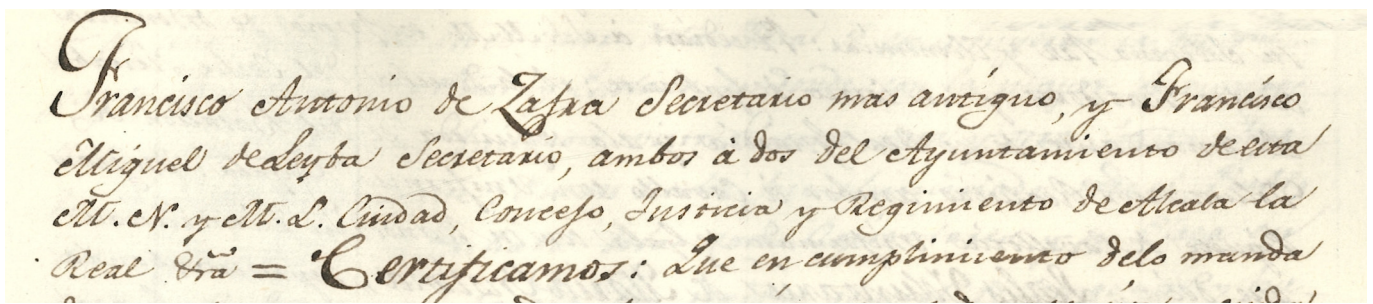 Francisco Antonio de Zafra Secretario mas antiguo, y Francisco
Miguel de Leyba Secretario, ambos á dos del Ayuntamiento de esta
M. N. y M. L. Ciudad, Concejo, Justicia y Regimiento de Alcala la
Real &rã = Certificamos: Que en cumplimiento de lo manda